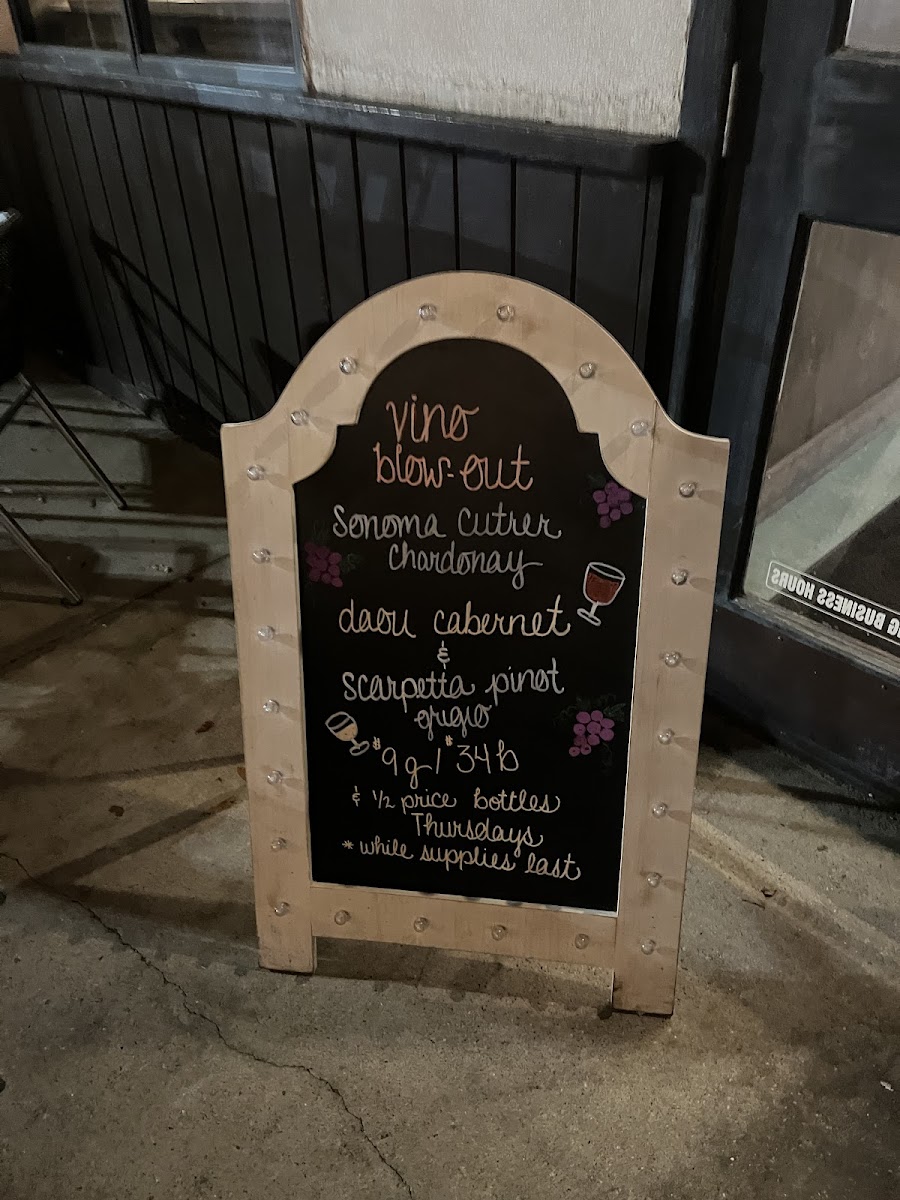 vino
blow-out
Sonoma Cutrer
Chardonay
daou cabernet
&
Scarpetta pinot
grigio
$9g/$34b
& 1/2 price bottles
Thursdays
*while supplies last
BUSINESS HOURS